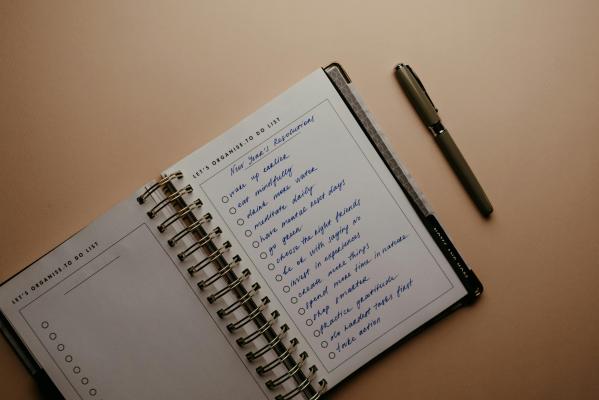 LET'S ORGANISE.TO DO LIST
LET'S ORGANISE.TO DO LIST
New Year's Resolutions
wake up earlier
eat mindfully
drink more water
meditate daily
have mental rest days
go green
choose the right friends
be ok with saying no
invest in experiences
create more things
spend more time in nature
shop smarter
practice gratitude
do hardest tasks first
take action